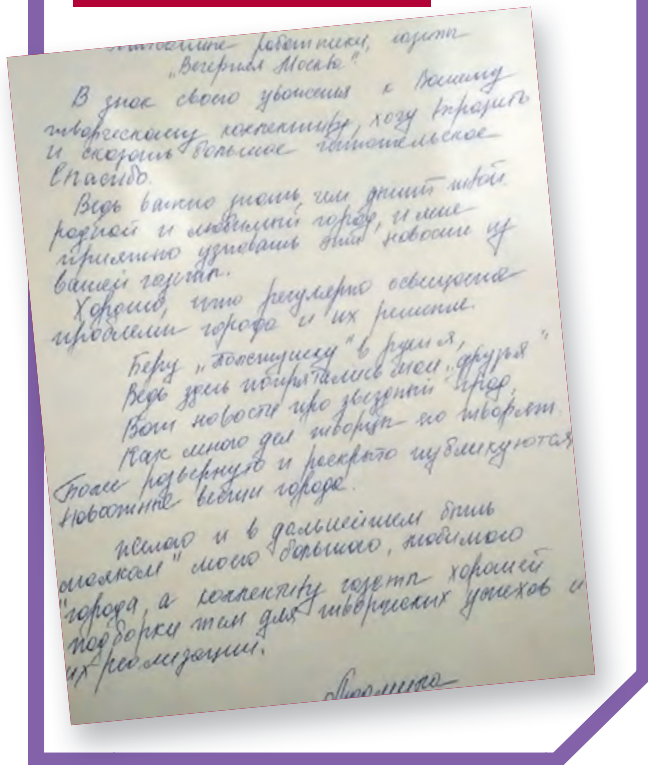 работники, газеты
"Вечерняя Москва"
В знак своего уважения к Вашему
творческому коллективу, хочу выразить
и сказать большое читательское
спасибо.
Ведь важно знать, чем дышит твой
родной и любимый город, и мне
приятно узнавать эти новости из
вашей газеты.
Хорошо, что регулярно освещаете
проблемы города и их решение.
Беру „Толстушку" в руки я,
Ведь здесь попрятались мои „друзья"
Вот новости про звездный град,
Как много дел творцы его творят.
Тоже развернуто и раскрыто публикуются
новостные города.
Желаю и в дальнейшем быть
"маяком" моего большого, любимого
города, а коллективу газеты хорошей
подборки тем для творческих успехов и
их реализации.
Людмила